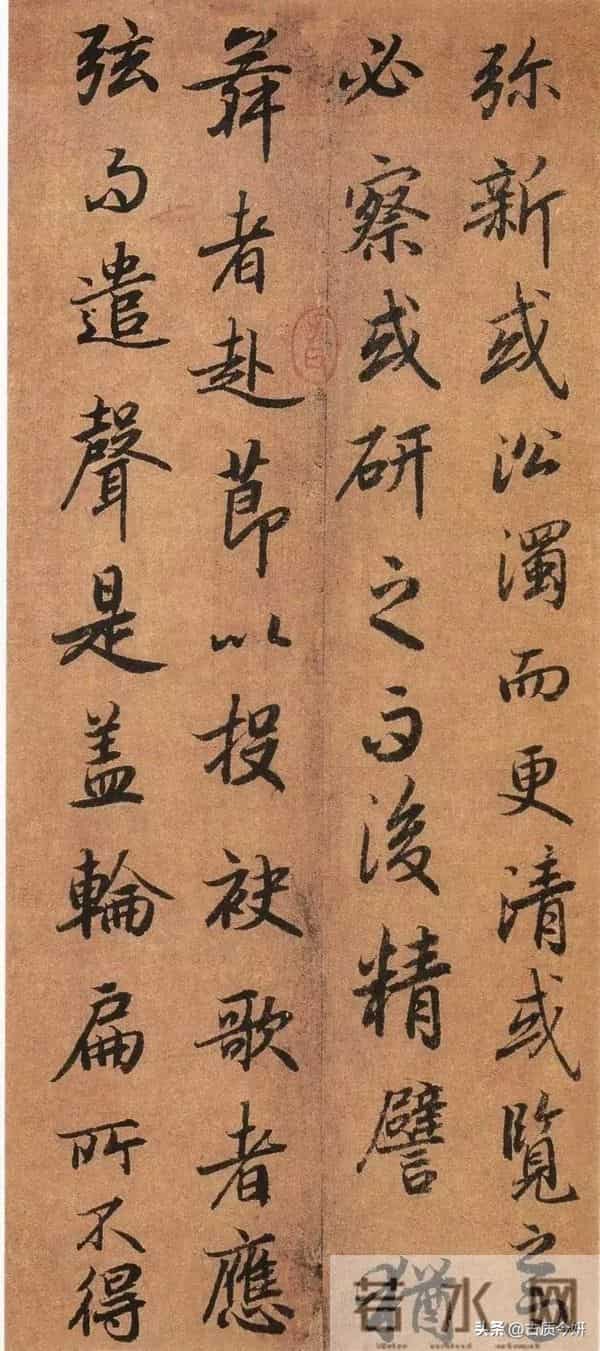 弥新或㳂濁而更清或覽之而
必察或研之而後精譬猶
舞者赴莭以投袂歌者應
弦而遣聲是盖輪扁所不得
若水网
头条 @古质今妍